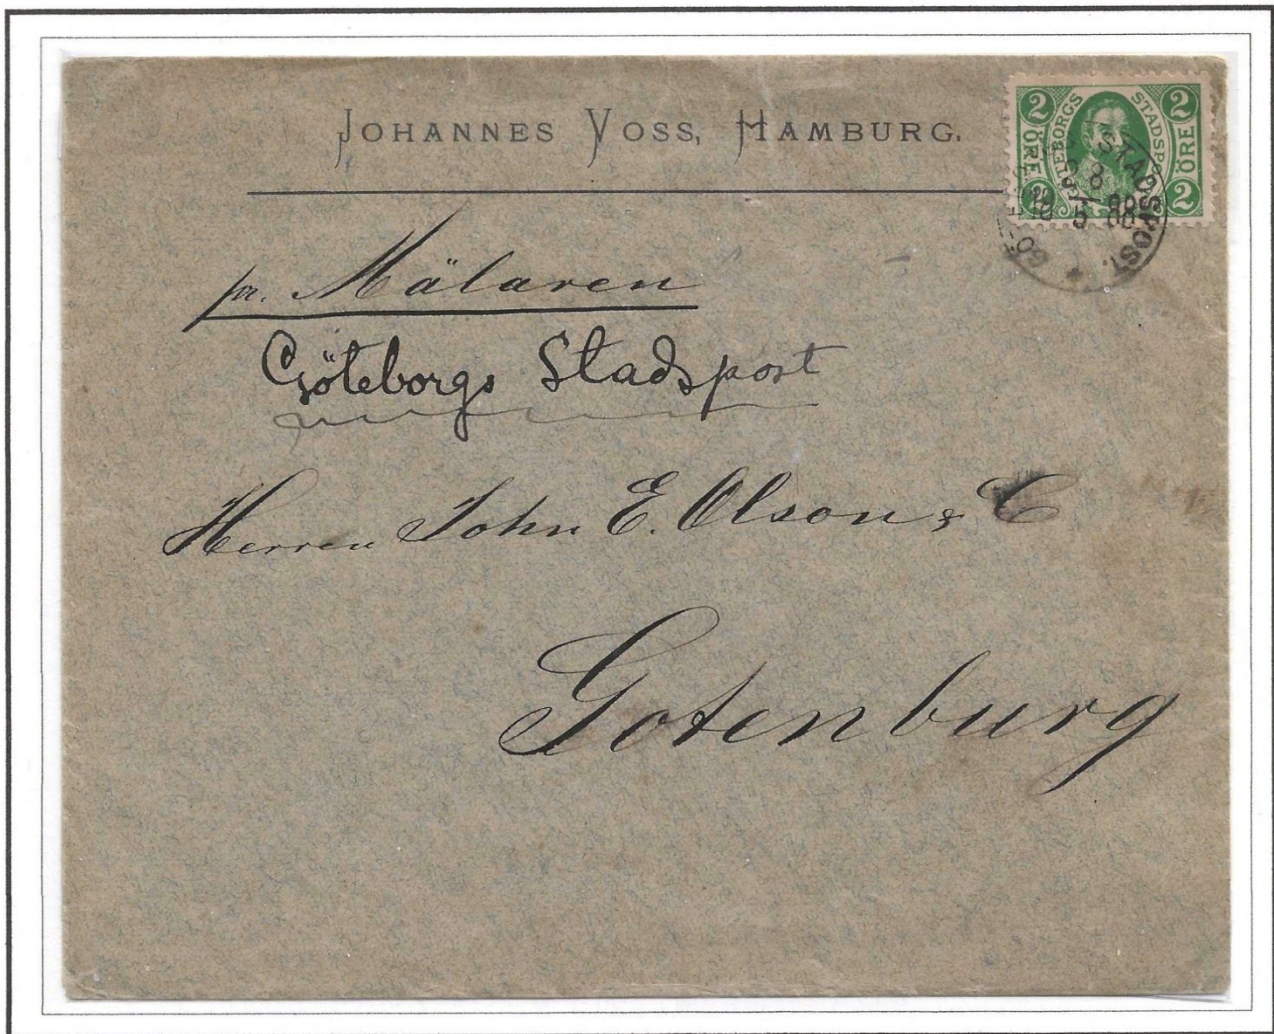 JOHANNES VOSS, HAMBURG.
2 2
GÖTEBORGS STADSPOST
ÖRE ÖRE
2
STADSPOST.
8
5 88
pr. Mälaren
Göteborgs Stadspost
Herren John E. Olson & C
Gotenburg